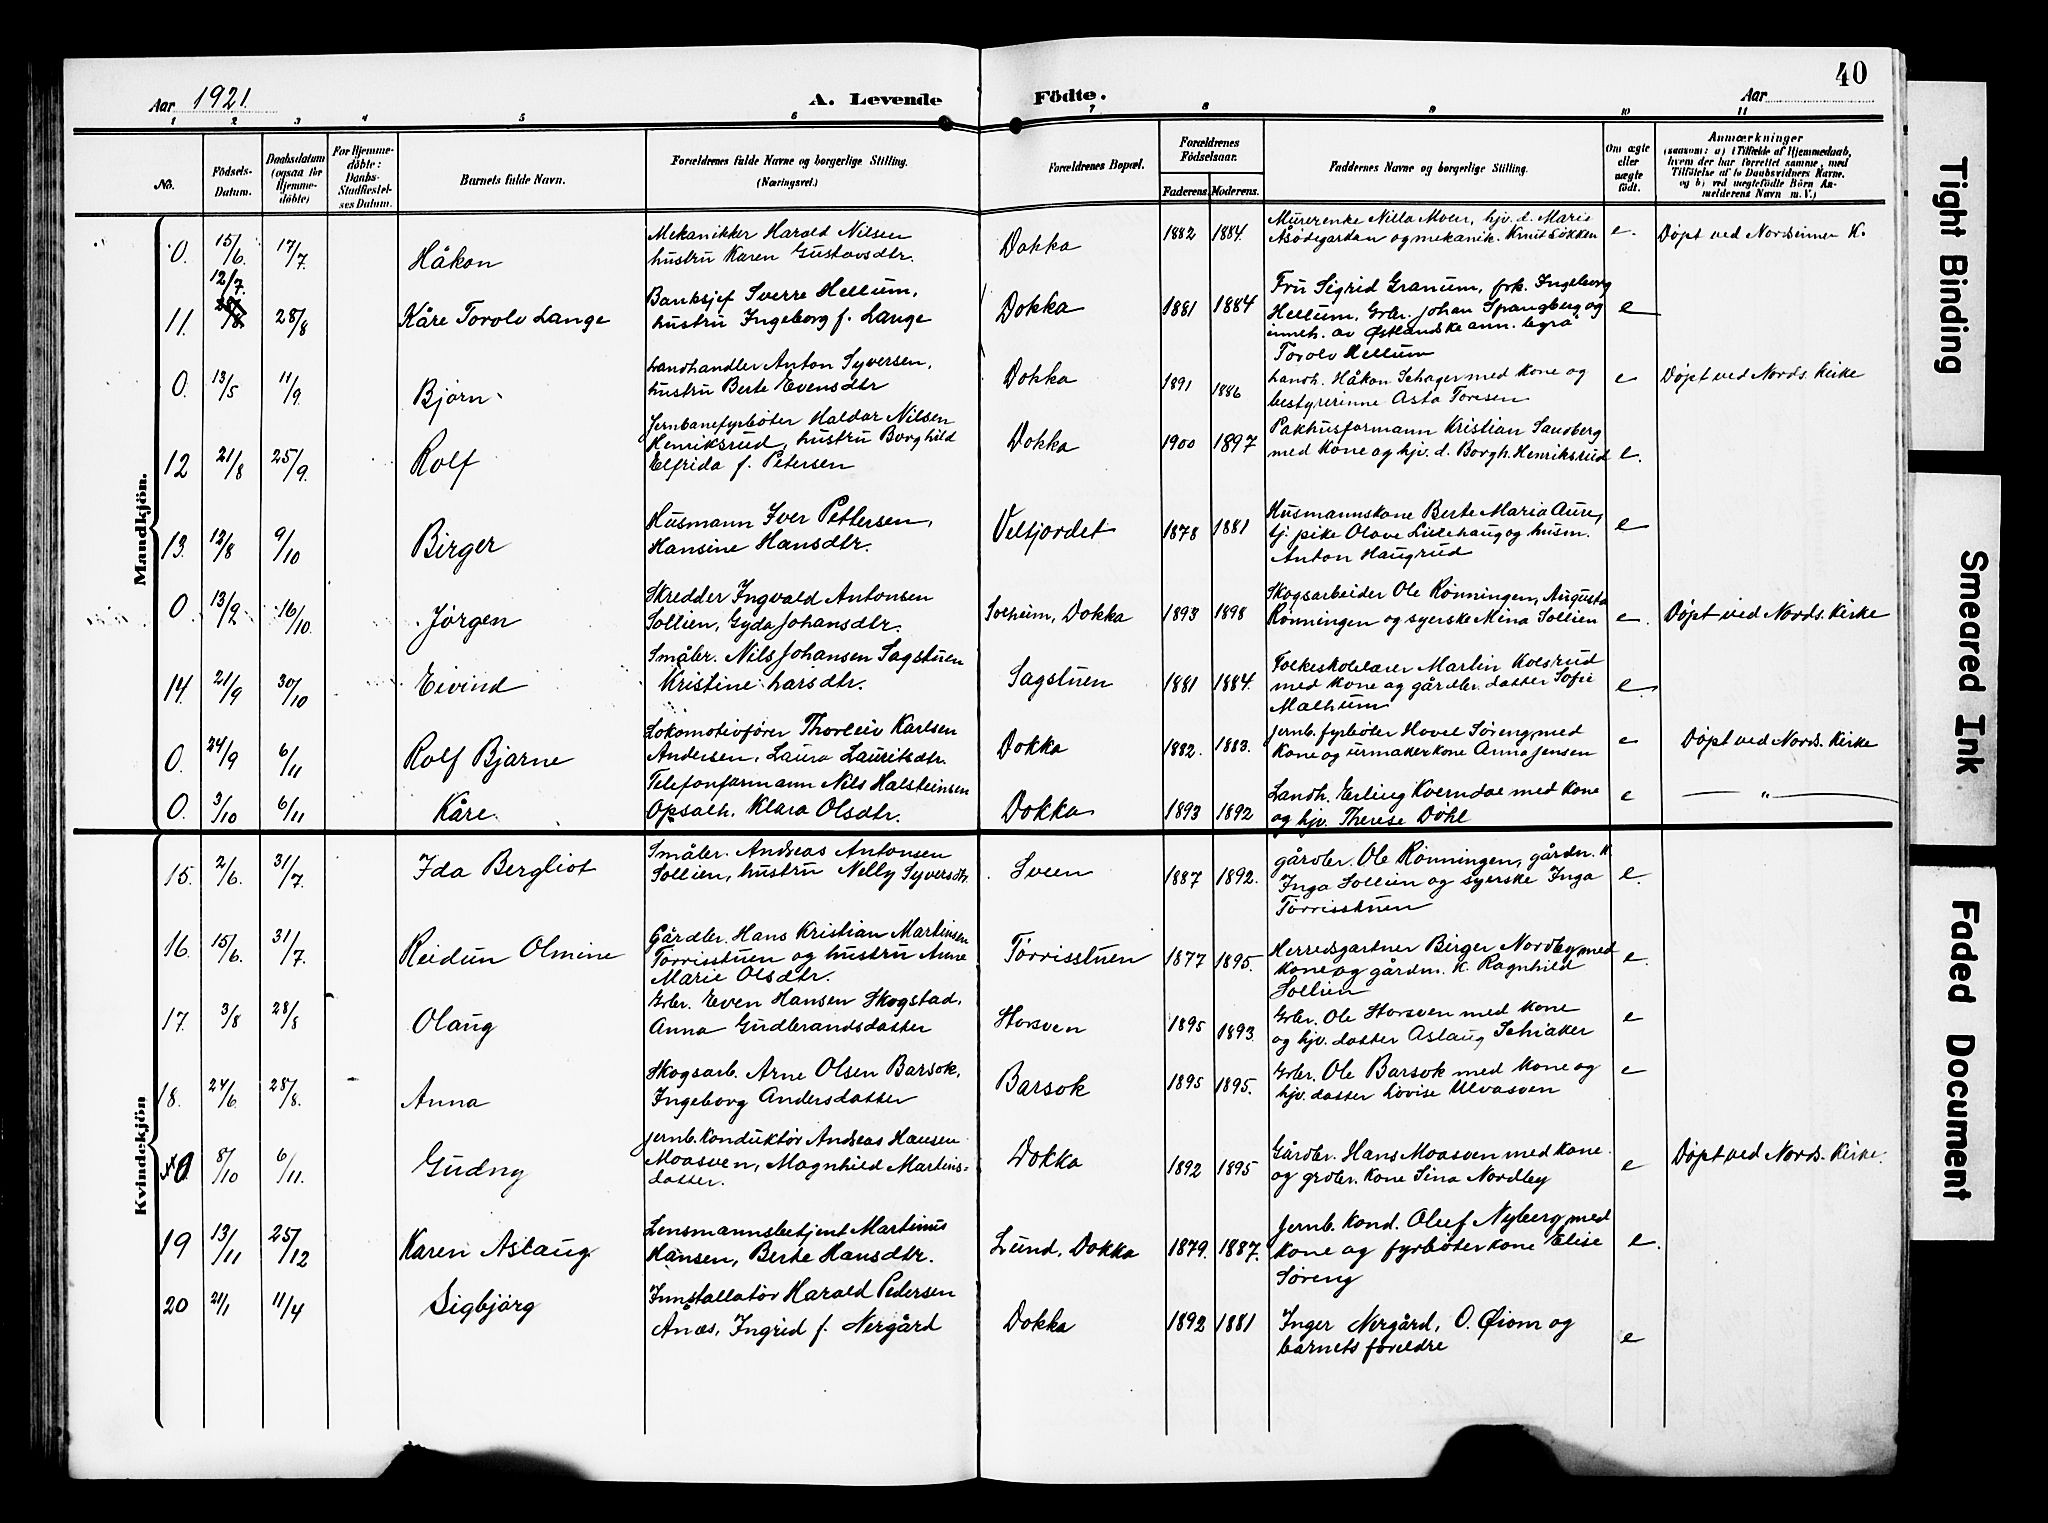 40
Aar 1921.
A. Levende Födte.
Aar
1 2 3 4 5 6 7 8 9 10 11
No.
Födsels-Datum.
Daabsdatum (ogsaa for Hjemme-döbte)
For Hjemme-döbte: Daabs-Stadfæstelses Datum.
Barnets fulde Navn.
Forældrenes fulde Navne og borgerlige Stilling.
(Næringsvei.)
Forældrenes Bopæl.
Forældrenes Födselsaar.
Faderens. Moderens.
Faddernes Navne og borgerlige Stilling.
Om ægte eller uægte födt.
Anmærkninger
(saasom: a) i Tilfælde af Hjemmedaab, hvem der har forrettet samme, med Tilføielse af to Daabsvidners Navne. og b) ved uægtefödte Börn Anmelderens Navn m. V.)
Mandkjön.
0. 15/6. 17/7 Håkon
Mekanikker Harald Nilsen
hustru Karen Gustavsdtr.
Dokka 1882 1884.
Murerenke Nilla Moen, hjv. d. Marie
og mekanik. Knut Løkken
e. Døpt ved Nordsinnen K.
12/7.
11. 28/8 Kåre Torolv Lange
Banksjef Sverre Hellum,
hustru Ingeborg f. Lange
Dokka 1881 1884
Fru Sigrid Granum, frk. Ingeborg
Hellum, Grbr. Johan Spangberg og
inneh. av Østlandske ann. byrå
Torolv Hellum
e
0. 13/5 11/9. Bjørn
Landhandler Anton Syversen,
hustru Berte Evensdtr
Dokka 1891 1886
Landh. Håkon Schager med kone og
bestyrerinne Asta Toresen
e Døpt ved Nords. Kirke
12 21/8 25/9. Rolf
Jernbanefyrbøter Haldor Nilsen
Henriksrud, hustru Borghild
Elfrida f. Petersen
Dokka 1900 1897
Pakhusformann Kristian Sandberg
med kone og hjv. d. Borgh. Henriksrud
e.
13. 12/8 9/10 Birger
Husmann Iver Pettersen,
Hansine Hansdtr.
Velfjordet 1878 1881
Husmannskone Berte Maria Aure,
tj. pike Olave Lillehaug og husm.
Anton Haugrud
e
0 13/9 16/10. Jørgen
Skredder Ingvald Antonsen
Sollien, Gyda Johansdtr.
Solheim, Dokka 1893 1898
Skogsarbeider Ole Rønningen, Augusta
Rønningen og syerske Mina Sollien
e. Døpt ved Nords. Kirke
14. 21/9 30/10 Eivind
Småbr. Nils Johansen Sagstuen
Kristine Larsdtr.
Sagstuen 1881 1884.
Folkeskolelærer Martin Kolsrud
med kone og gårdbr. datter Sofie
Malhum
e
0. 24/9 6/11 Rolf Bjarne
Lokomotivfører Thorleiv Karlsen
Andersen, Laura Lauritsdtr.
Dokka 1882. 1883.
Jernb. fyrbøter Hovel Søreng, med
kone og urmakerkone Anna Jensen
e Døpt ved Nords. Kirke
0. 3/10 6/11 Kåre
Telefonformann Nils Halsteinsen
Opsalh, Klara Olsdtr.
Dokka 1893 1892
Landh. Erling Kverndal med kone
og hjv. Therese Døhl
e — " —
Kvindekjön
15. 2/6. 31/7. Ida Bergliot
Småbr. Andreas Antonsen
Sollien, hustru Nelly Syversdtr.
Sveen 1887 1892.
gårdbr. Ole Rønningen, gårdm. K
Inga Sollien og syerske Inga
Tørrisstuen
e.
16. 15/6. 31/7. Reidun Olmine
Gårdbr. Hans Kristian Martinsen
Tørrisstuen og hustru Anne
Marie Olsdtr.
Tørrisstuen 1877 1895.
Herredsgartner Birger Nordby med
kone og gårdm. K. Ragnhild
Sollien
e.
17. 3/8 28/8 Olaug
Grbr. Even Hansen Skogstad,
Anna Gudbrandsdatter
Storsven 1895 1893.
Grbr. Ole Storsven med kone
og hjv. datter Aslaug Schiaker
e
18. 24/6. 28/8. Anna
Skogsarb. Arne Olsen Barsok,
Ingeborg Andersdatter
Barsok 1895 1895.
Grbr. Ole Barsok med kone og
hjv. datter Lovise Ulvasven
e
0 8/10 6/11. Gudny
Jernb. konduktør Andreas Hansen
Moasven, Magnhild Martins-
datter.
Dokka 1892 1895
Gårdbr. Hans Moasven med kone
og grdbr. kone Sina Nordby
e Døpt ved Nords. Kirke.
19 13/11 25/12 Karen Aslaug
Lensmannsbetjent Martinus
Hansen, Berte Hansdtr.
Lund, Dokka 1879. 1887.
Jernb. kond. Oluf Nyberg med
kone og fyrbøterkone Elise
Søreng
e.
20 21/1 11/4 Sigbjørg
Innstallatør Harald Pedersen
Anæs, Ingrid f. Nergård
Dokka 1892 1881
Inger Nergård, O. Øiom og
barnets foreldre
e
Tight Binding
Smeared Ink
Faded Document